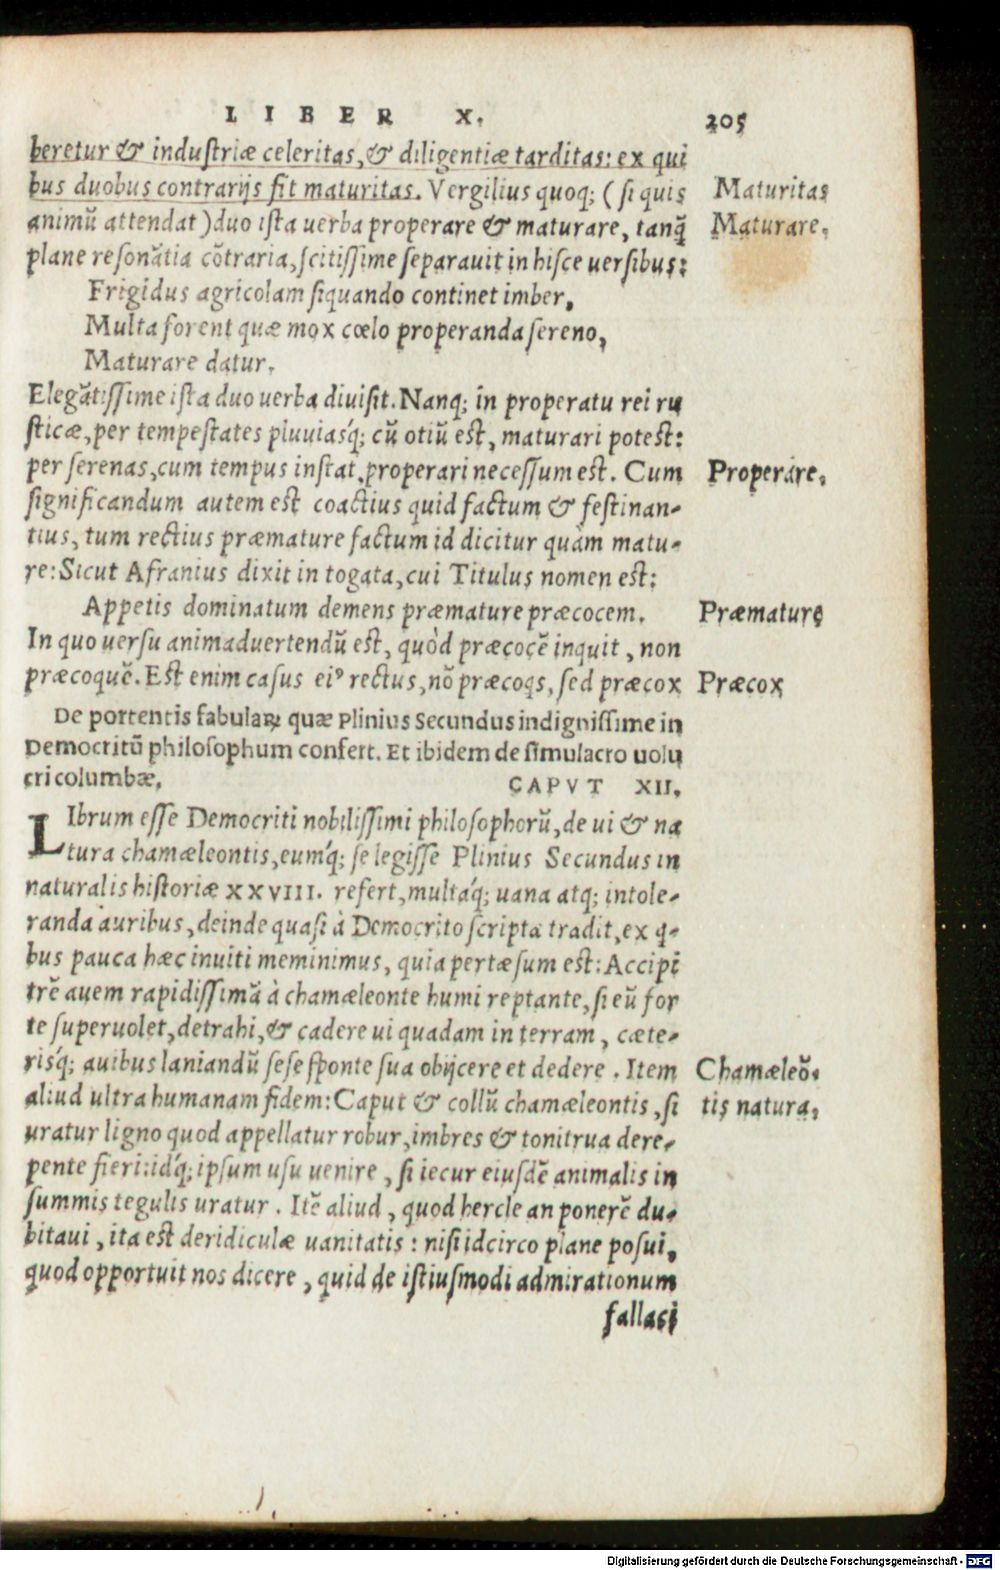 LIBER X. 205
beretur & industriæ celeritas, & diligentiæ tarditas: ex qui
bus duobus contrarijs fit maturitas. Vergilius quoq; (si quis
Maturitas
animũ attendat) duo ista uerba properare & maturare, tanq̃
Maturare.
plane resonãtia cõtraria, scitissime separauit in hisce uersibus:
Frigidus agricolam siquando continet imber,
Multa forent quæ mox cœlo properanda sereno,
Maturare datur.
Elegãtissime ista duo uerba diuisit. Nanq; in properatu rei ru
sticæ, per tempestates pluuiasq́; cũ otiũ est, maturari potest:
per serenas, cum tempus instat, properari necessum est. Cum
Properare.
significandum autem est coactius quid factum & festinan-
tius, tum rectius præmature factum id dicitur quàm matu-
re: Sicut Afranius dixit in togata, cui Titulus nomen est:
Appetis dominatum demens præmature præcocem.
Præmature
In quo uersu animaduertendũ est, quòd præcocẽ inquit, non
præcoquẽ. Est enim casus eiꝰ rectus, nõ præcoqs, sed præcox
Præcox
De portentis fabulaꝝ quæ Plinius Secundus indignissime in
Democritũ philosophum confert. Et ibidem de simulacro uolu
cri columbæ. CAPVT XII.
LIbrum esse Democriti nobilissimi philosophorũ, de ui & na
tura chamæleontis, eumq́; se legisse Plinius Secundus in
naturalis historiæ XXVIII. refert, multaq́; uana atq; intole-
randa auribus, deinde quasi à Democrito scripta tradit, ex q-
bus pauca hæc inuiti meminimus, quia pertæsum est: Accipi
trẽ auem rapidissimã à chamæleonte humi reptante, si eũ for
te superuolet, detrahi, & cadere ui quadam in terram, cæte-
risq́; auibus laniandũ sese sponte sua obijcere et dedere. Item
Chamæleõ-
aliud ultra humanam fidem: Caput & collũ chamæleontis, si
tis natura.
uratur ligno quod appellatur robur, imbres & tonitrua dere-
pente fieri: idq́; ipsum usu uenire, si iecur eiusdẽ animalis in
summis tegulis uratur. Itẽ aliud, quod hercle an ponerẽ du-
bitaui, ita est deridiculæ uanitatis: nisi idcirco plane posui,
quod opportuit nos dicere, quid de istiusmodi admirationum
fallaci
Digitalisierung gefördert durch die Deutsche Forschungsgemeinschaft - DFG